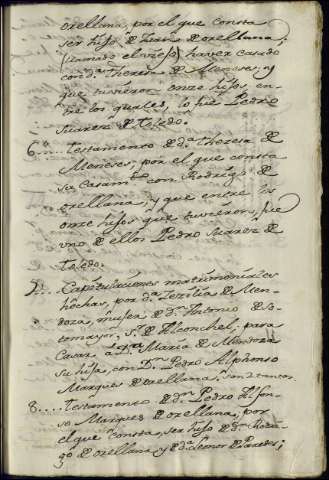 orellana, por el que consta
ser hijo de Hern.do de orellana,
(llamado el viejo) haver casado
con d.a Theresa de Meneses, y
que tuvieron onze hijos, en-
tre los quales, lo fue Pedro
Suarez de Toledo.
6.... Testamento de d.a Theresa de
Meneses, por el que consta
su Casam.to con Rodrigo de
orellana, y que entre los
onze hijos que tuvieron, fue
uno de ellos Pedro Suarez de
Toledo.
7.... Capitulaciones matrimoniales
hechas, por d.a Zezilia de Men-
doza, muger de d.n Antonio de So-
tomayor, s.r de Alconchel, para
Casar a D.a Maria de Mendoza
su hija, con D.n Pedro Alphonso
Marques de orellana, son 2 tantos.
8.... Testamento de d.n Pedro Alfon-
so Marques de orellana, por
el que consta, ser hijo de d.n
go de orellana y de d.a Leonor de Paredes;